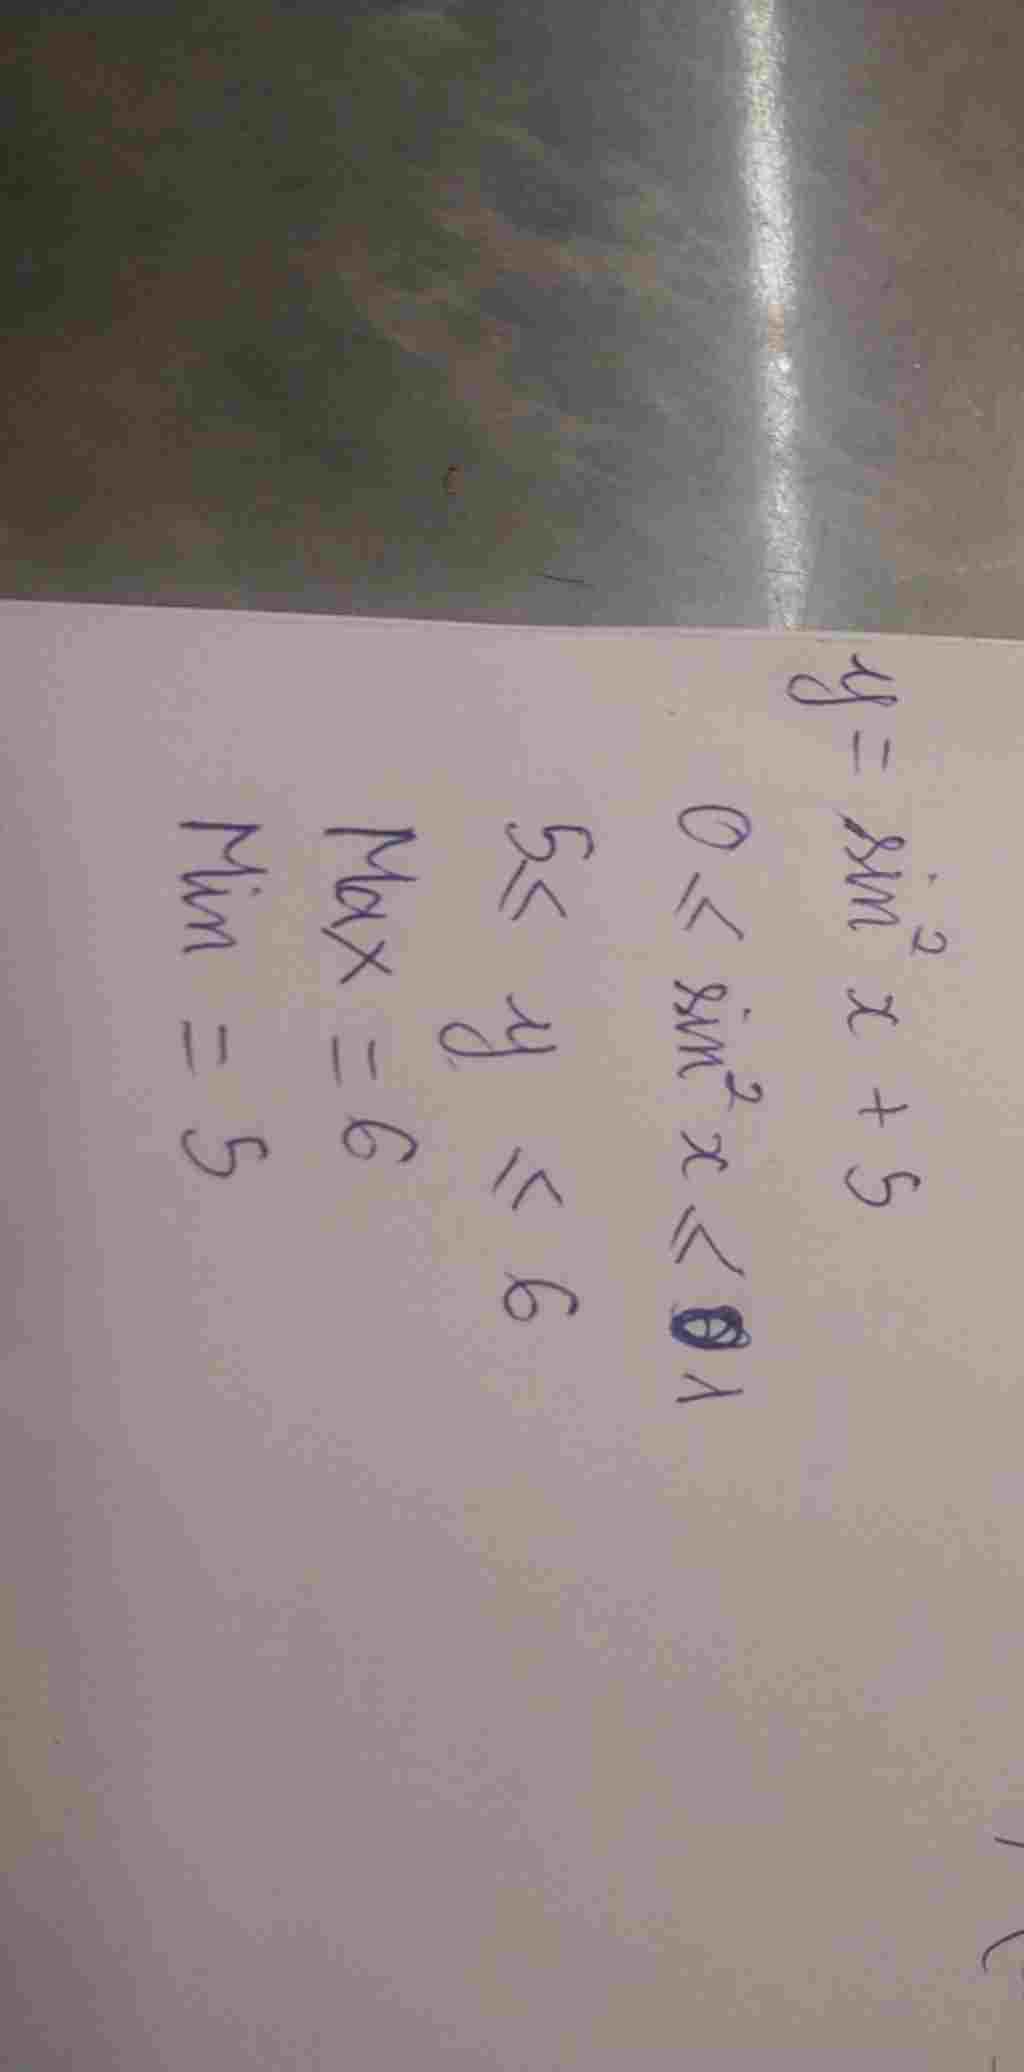 y = sin² x + 5
0 ≤ sin² x ≤ 1
5 ≤ y ≤ 6
Max = 6
Min = 5